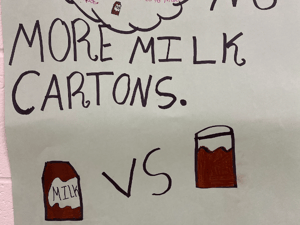 NO
MORE MILK
CARTONS.
MILK
VS